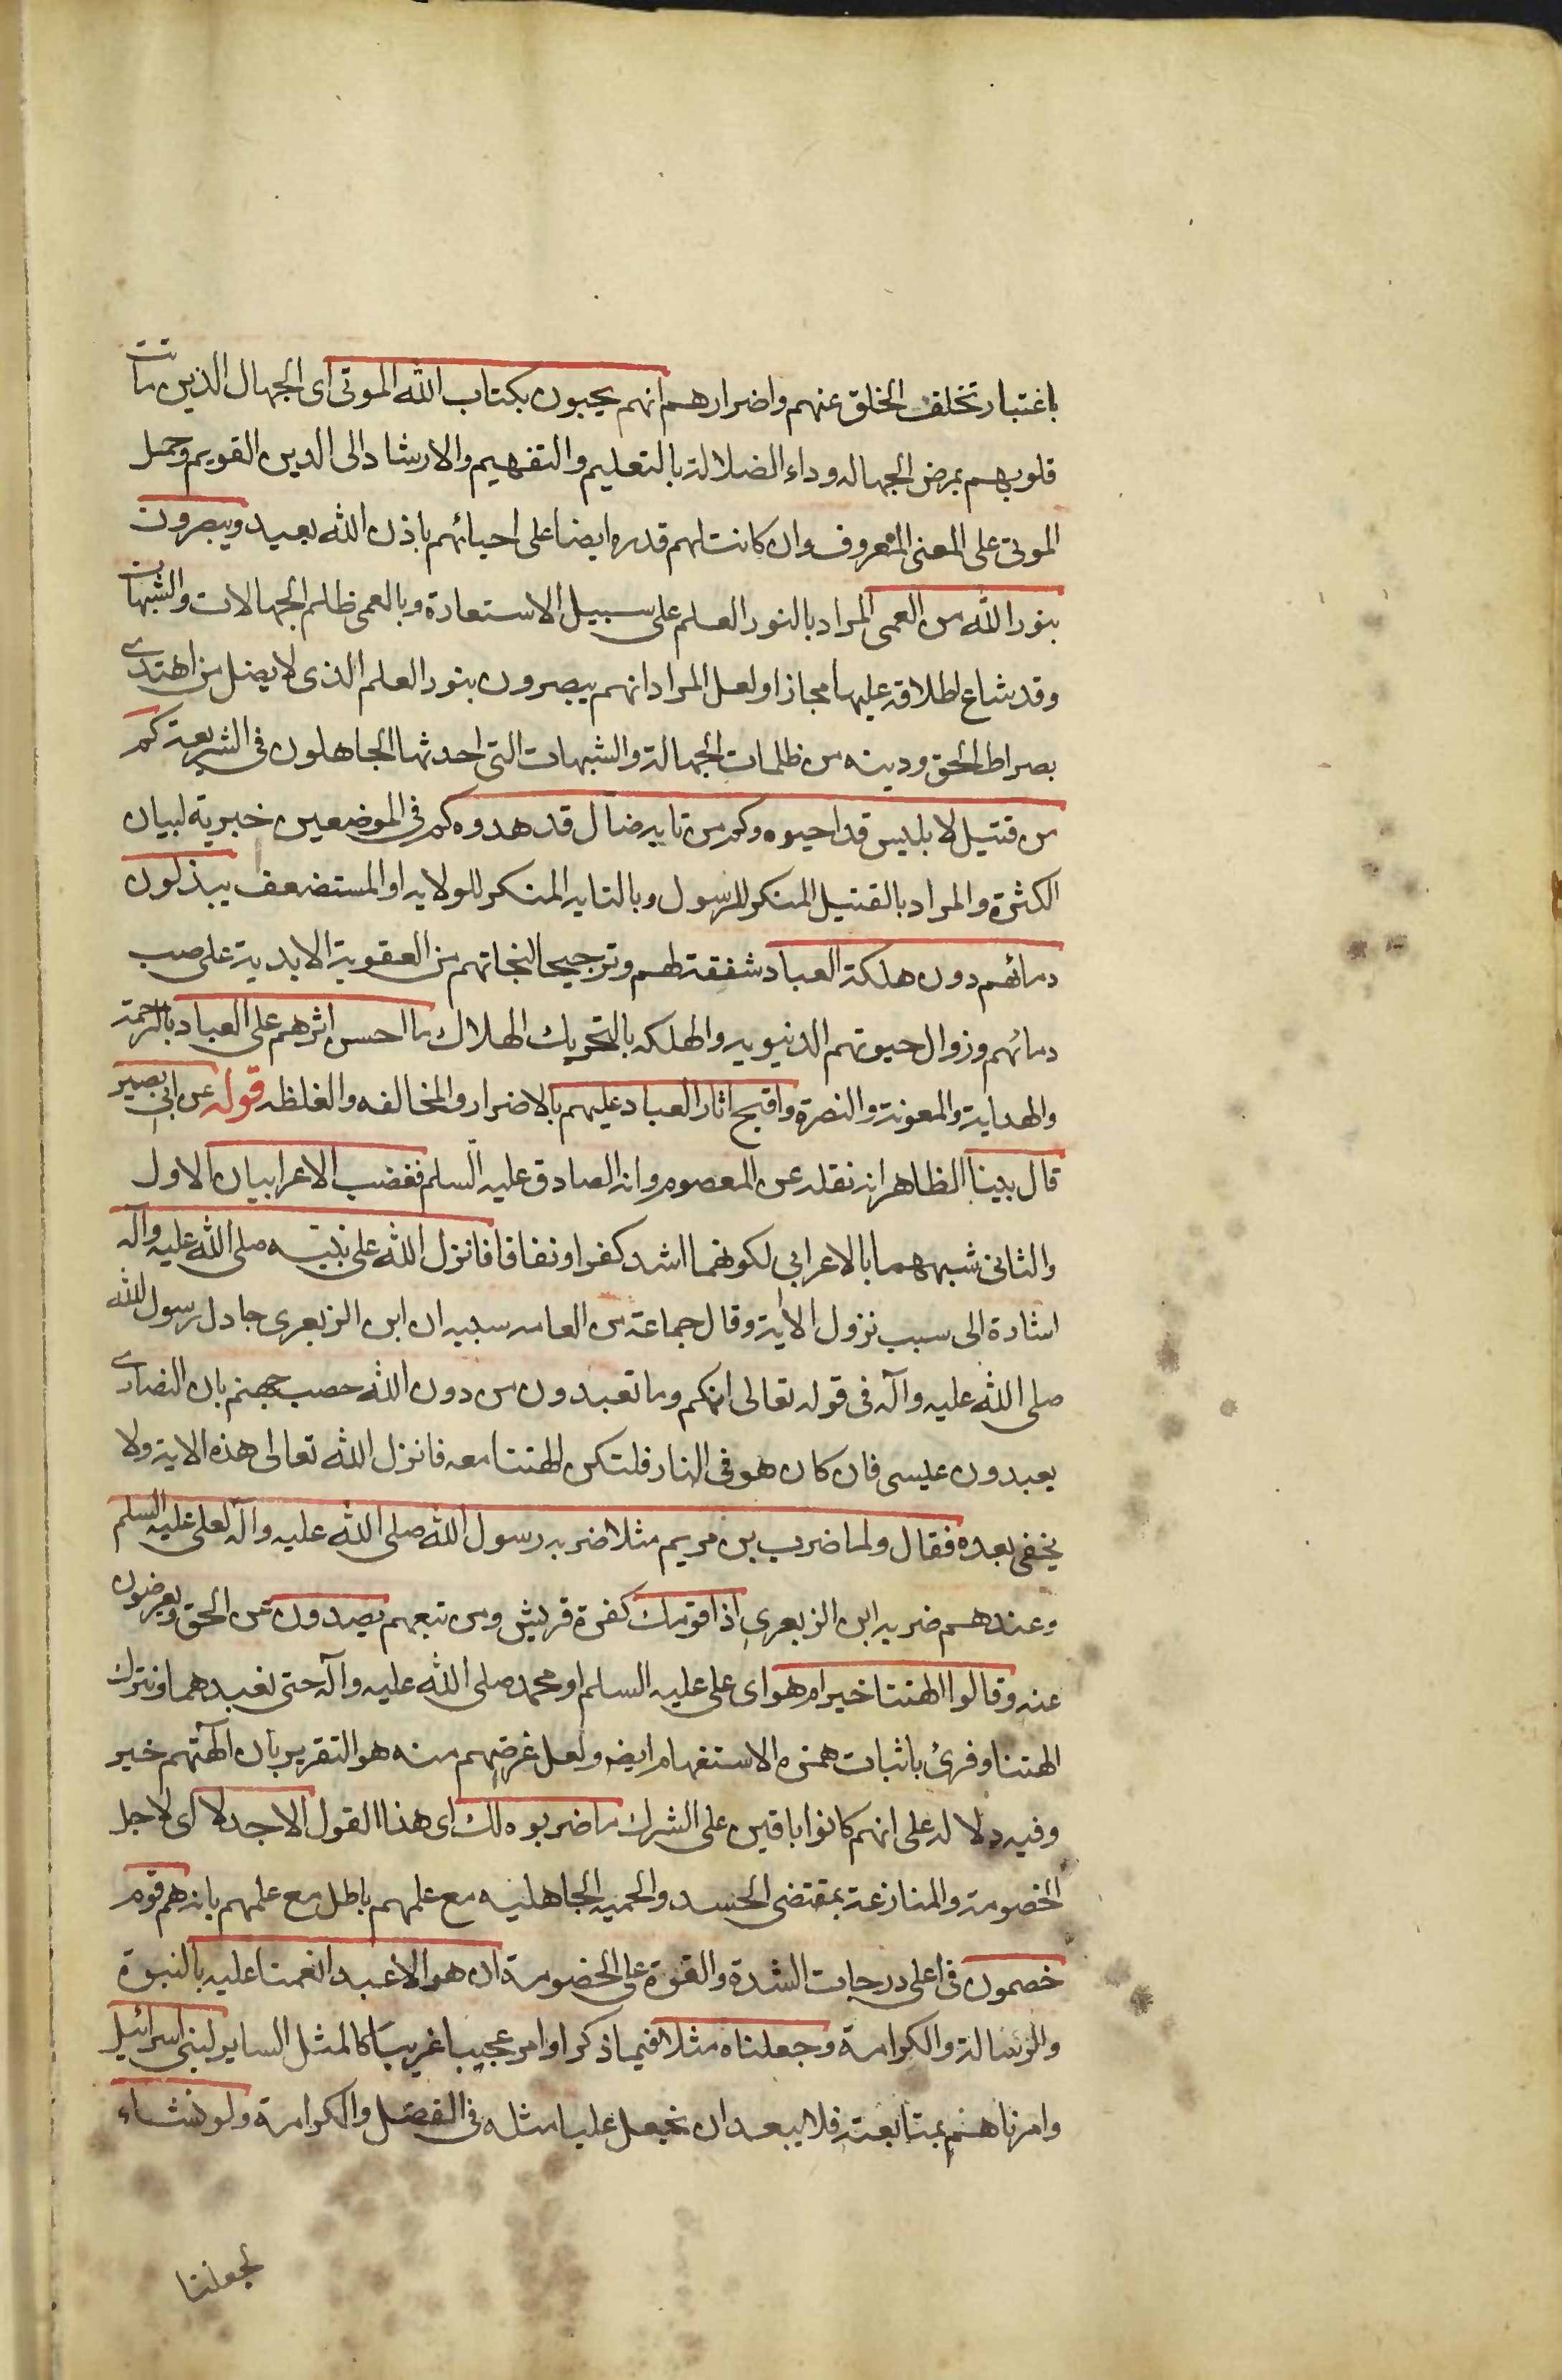 باعتبار تخلف الخلق عنهم واضرارهم انهم يحيون بكتاب الله الموتى اى الجهال الذين ماتت
قلوبهم بمرض الجهاله وداء الضلالة بالتعليم والتفهيم والارشاد الى الدين القويم وحمل
الموتى على المعنى المعروف وان كانت لهم قدره ايضا على احيائهم باذن الله بعيد ويبصرون
بنور الله من العمى المراد بالنور العلم على سبيل الاستعارة وبالعمى ظلم الجهالات والشبهات
وقد شاع اطلاقه عليها مجازا ولعل المراد انهم يبصرون بنور العلم الذى لا يضل من اهتدى
بصراط الحق ودينه من ظلمات الجهالة والشبهات التى احدثها الجاهلون فى الشريعة كم
من قتيل لابليس قد احيوه وكم من تايه ضال قد هدوه كم فى الموضعين خبرية لبيان
الكثرة والمراد بالقتيل المنكر للرسول وبالتايه المنكر للولايه او المستضعف يبذلون
دمائهم دون هلكة العباد شفقة لهم وترجيحا لنجاتهم من العقوبة الابدية على صب
دمائهم وزوال حيوتهم الدنيويه والهلكه بالتحريك الهلاك ما احسن اثرهم على العباد بالرحمة
والهداية والمعونة والنصرة واقبح اثار العباد عليهم بالاضرار والمخالفه والغلظه قوله عن ابى بصير
قال بينا الظاهر انه نقله عن المعصوم وانه الصادق عليه السلم فغضب الاعرابيان الاول
والثانى شبههما بالاعرابى لكونهما اشد كفرا ونفاقا فانزل الله على نبيه صلى الله عليه وآله
اشارة الى سبب نزول الاية وقال جماعة من العامه سببه ان ابن الزبعرى جادل رسول الله
صلى الله عليه وآله فى قوله تعالى انكم وما تعبدون من دون الله حصب جهنم بان النصارى
يعبدون عيسى فان كان هو فى النار فلتكن الهتنا معه فانزل الله تعالى هذه الاية ولا
يخفى بعده فقال ولما ضرب بن مريم مثلا ضربه رسول الله صلى الله عليه وآله لعلى عليه السلم
وعندهم ضربه ابن الزبعرى اذا قومك كفرة قريش ومن تبعهم يصدون عن الحق ويعرضون
عنه وقالوا الهتنا خير ام هو اى على عليه السلم او محمد صلى الله عليه وآله حتى نعبدهما ونترك
الهتنا وقرئ باثبات همزه الاستفهام ايضه ولعل غرضهم منه هو التقرير بان الهتهم خير
وفيه دلاله على انهم كانوا باقين على الشرك ما ضربوه لك اى هذا القول الا جدلا اى لاجل
الخصومة والمنازعة بمقتضى الحسد والحميه الجاهليه مع علمهم باطل مع علمهم بانه هم قوم
خصمون فى اعلى درجات الشدة والقوة على الخصومة ان هو الا عبد انعمنا عليه بالنبوة
والرسالة والكرامة وجعلناه مثلا فيما ذكر او امر عجيبا غريبا كالمثل الساير لبنى اسرائيل
وامرناهم بمتابعته فلا يبعد ان نجعل عليا مثله فى الفضل والكرامة ولو نشاء
لجعلنا